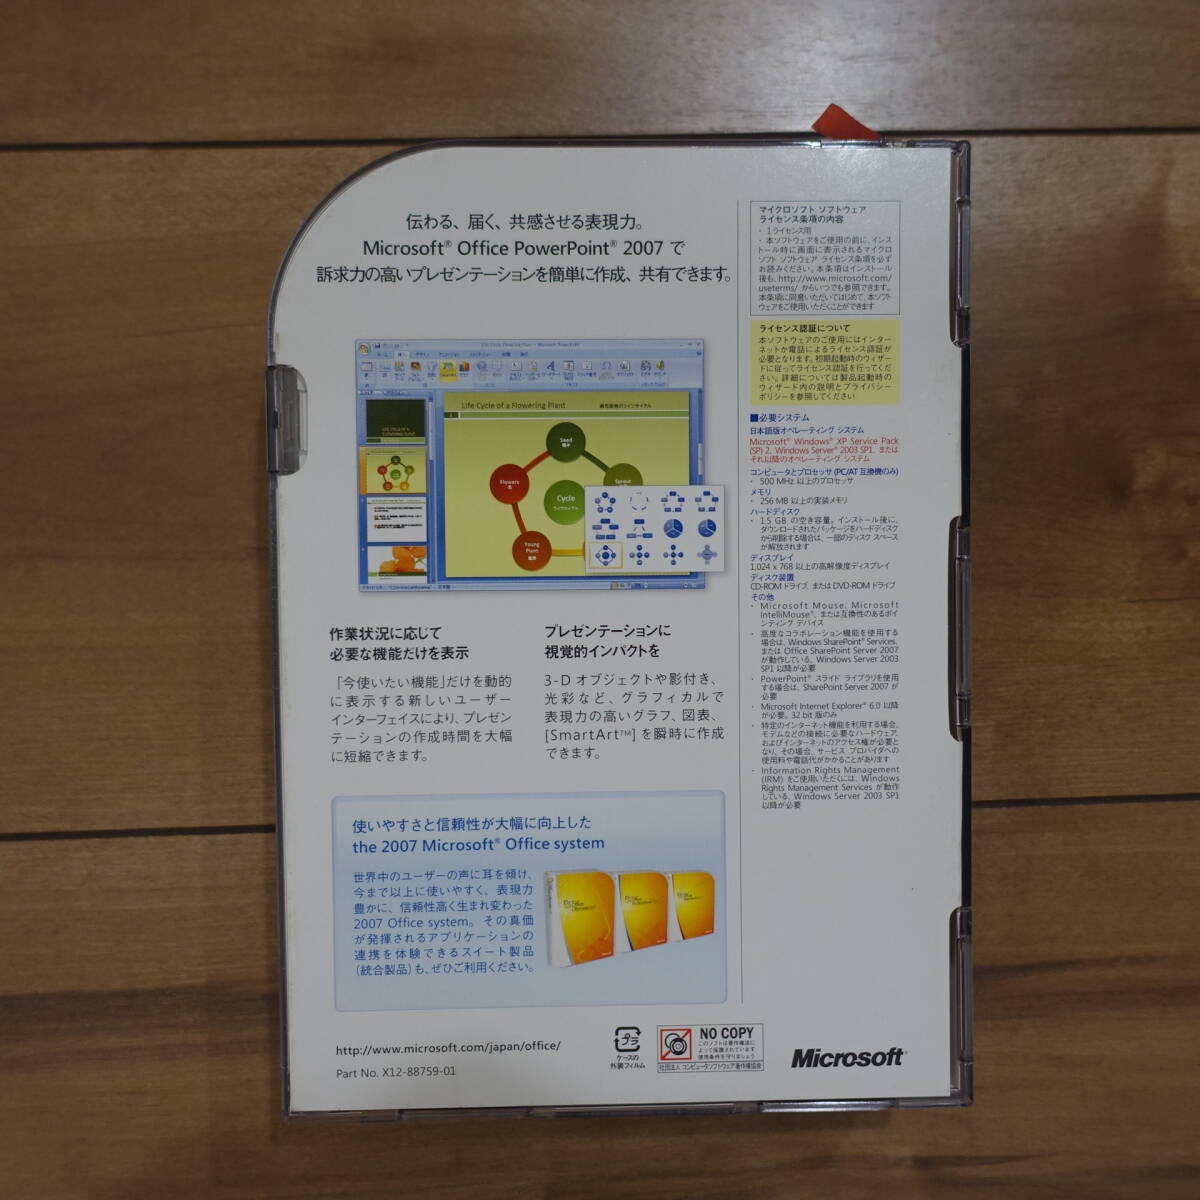 伝わる、届く、共感させる表現力。
Microsoft® Office PowerPoint® 2007 で
訴求力の高いプレゼンテーションを簡単に作成、共有できます。
Life Cycle of a Flowering Plant
Seed
Flowers
Cycle
ライフサイクル
Sprout
Young
Plant
作業状況に応じて
必要な機能だけを表示
「今使いたい機能」だけを動的
に表示する新しいユーザー
インターフェイスにより、プレゼン
テーションの作成時間を大幅
に短縮できます。
プレゼンテーションに
視覚的インパクトを
3-D オブジェクトや影付き、
光彩など、グラフィカルで
表現力の高いグラフ、図表、
[SmartArt™] を瞬時に作成
できます。
使いやすさと信頼性が大幅に向上した
the 2007 Microsoft® Office system
世界中のユーザーの声に耳を傾け、
今まで以上に使いやすく、表現力
豊かに、信頼性高く生まれ変わった
2007 Office system。その真価
が発揮されるアプリケーションの
連携を体験できるスイート製品
（統合製品）も、ぜひご利用ください。
http://www.microsoft.com/japan/office/
Part No. X12-88759-01
プラ
ケースの
外装フィルム
NO COPY
このソフトは著作権法に
よって保護されています
使用条件を守りましょう
社団法人 コンピュータソフトウェア著作権協会
Microsoft®
マイクロソフト ソフトウェア
ライセンス条項の内容
・ 1 ライセンス用
・ 本ソフトウェアをご使用の前に、インス
トール時に画面に表示されるマイクロ
ソフト ソフトウェア ライセンス条項を必ず
お読みください。本条項はインストール
後も、http://www.microsoft.com/
useterms/ からいつでも参照できます。
本条項に同意いただいてはじめて、本ソフト
ウェアをご使用いただくことができます
ライセンス認証について
本ソフトウェアのご使用にはインター
ネットか電話によるライセンス認証が
必要となります。初期起動時のウィザー
ドに従ってライセンス認証を行ってくだ
さい。詳細については製品起動時の
ウィザード内の説明とプライバシー
ポリシーを参照してください
■必要システム
日本語版オペレーティング システム
Microsoft® Windows® XP Service Pack
(SP) 2、Windows Server® 2003 SP1、または
それ以降のオペレーティング システム
コンピュータとプロセッサ (PC/AT 互換機のみ)
・ 500 MHz 以上のプロセッサ
メモリ
・ 256 MB 以上の実装メモリ
ハードディスク
・ 1.5 GB の空き容量。インストール後に、
ダウンロードされたパッケージをハードディスク
から削除する場合は、一部のディスク スペース
が解放されます
ディスプレイ
1,024 x 768 以上の高解像度ディスプレイ
ディスク装置
CD-ROM ドライブ、または DVD-ROM ドライブ
その他
・ Microsoft Mouse、Microsoft
IntelliMouse®、または互換性のあるポイ
ンティング デバイス
・ 高度なコラボレーション機能を使用する
場合は、Windows SharePoint® Services、
または Office SharePoint Server 2007
が動作している、Windows Server 2003
SP1 以降が必要
・ PowerPoint® スライド ライブラリを使用
する場合は、SharePoint Server 2007 が
必要
・ Microsoft Internet Explorer® 6.0 以降
が必要。32 bit 版のみ
・ 特定のインターネット機能を利用する場合、
モデムなどの接続に必要なハードウェア、
およびインターネットのアクセス権が必要と
なり、その場合、サービス プロバイダへの
使用料や電話代がかかることがあります
・ Information Rights Management
(IRM) をご使用いただくには、Windows
Rights Management Services が動作
している、Windows Server 2003 SP1
以降が必要